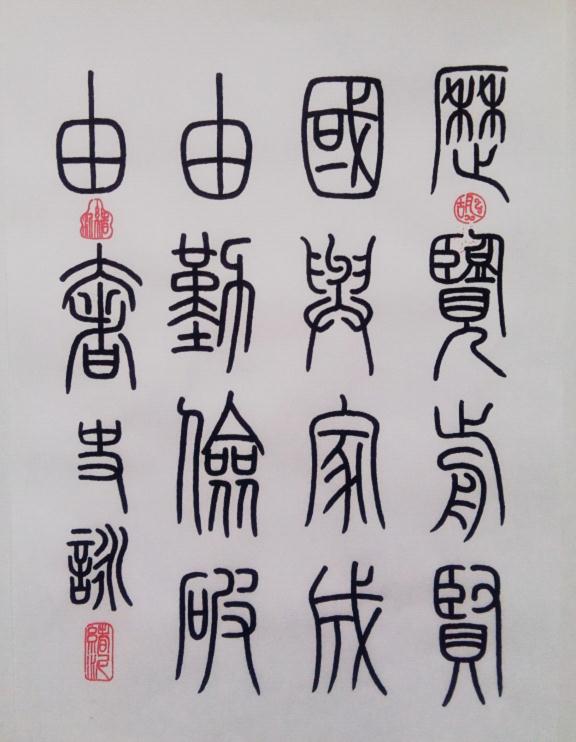 歷覽前賢
國與家成
由勤儉破
由奢史詠